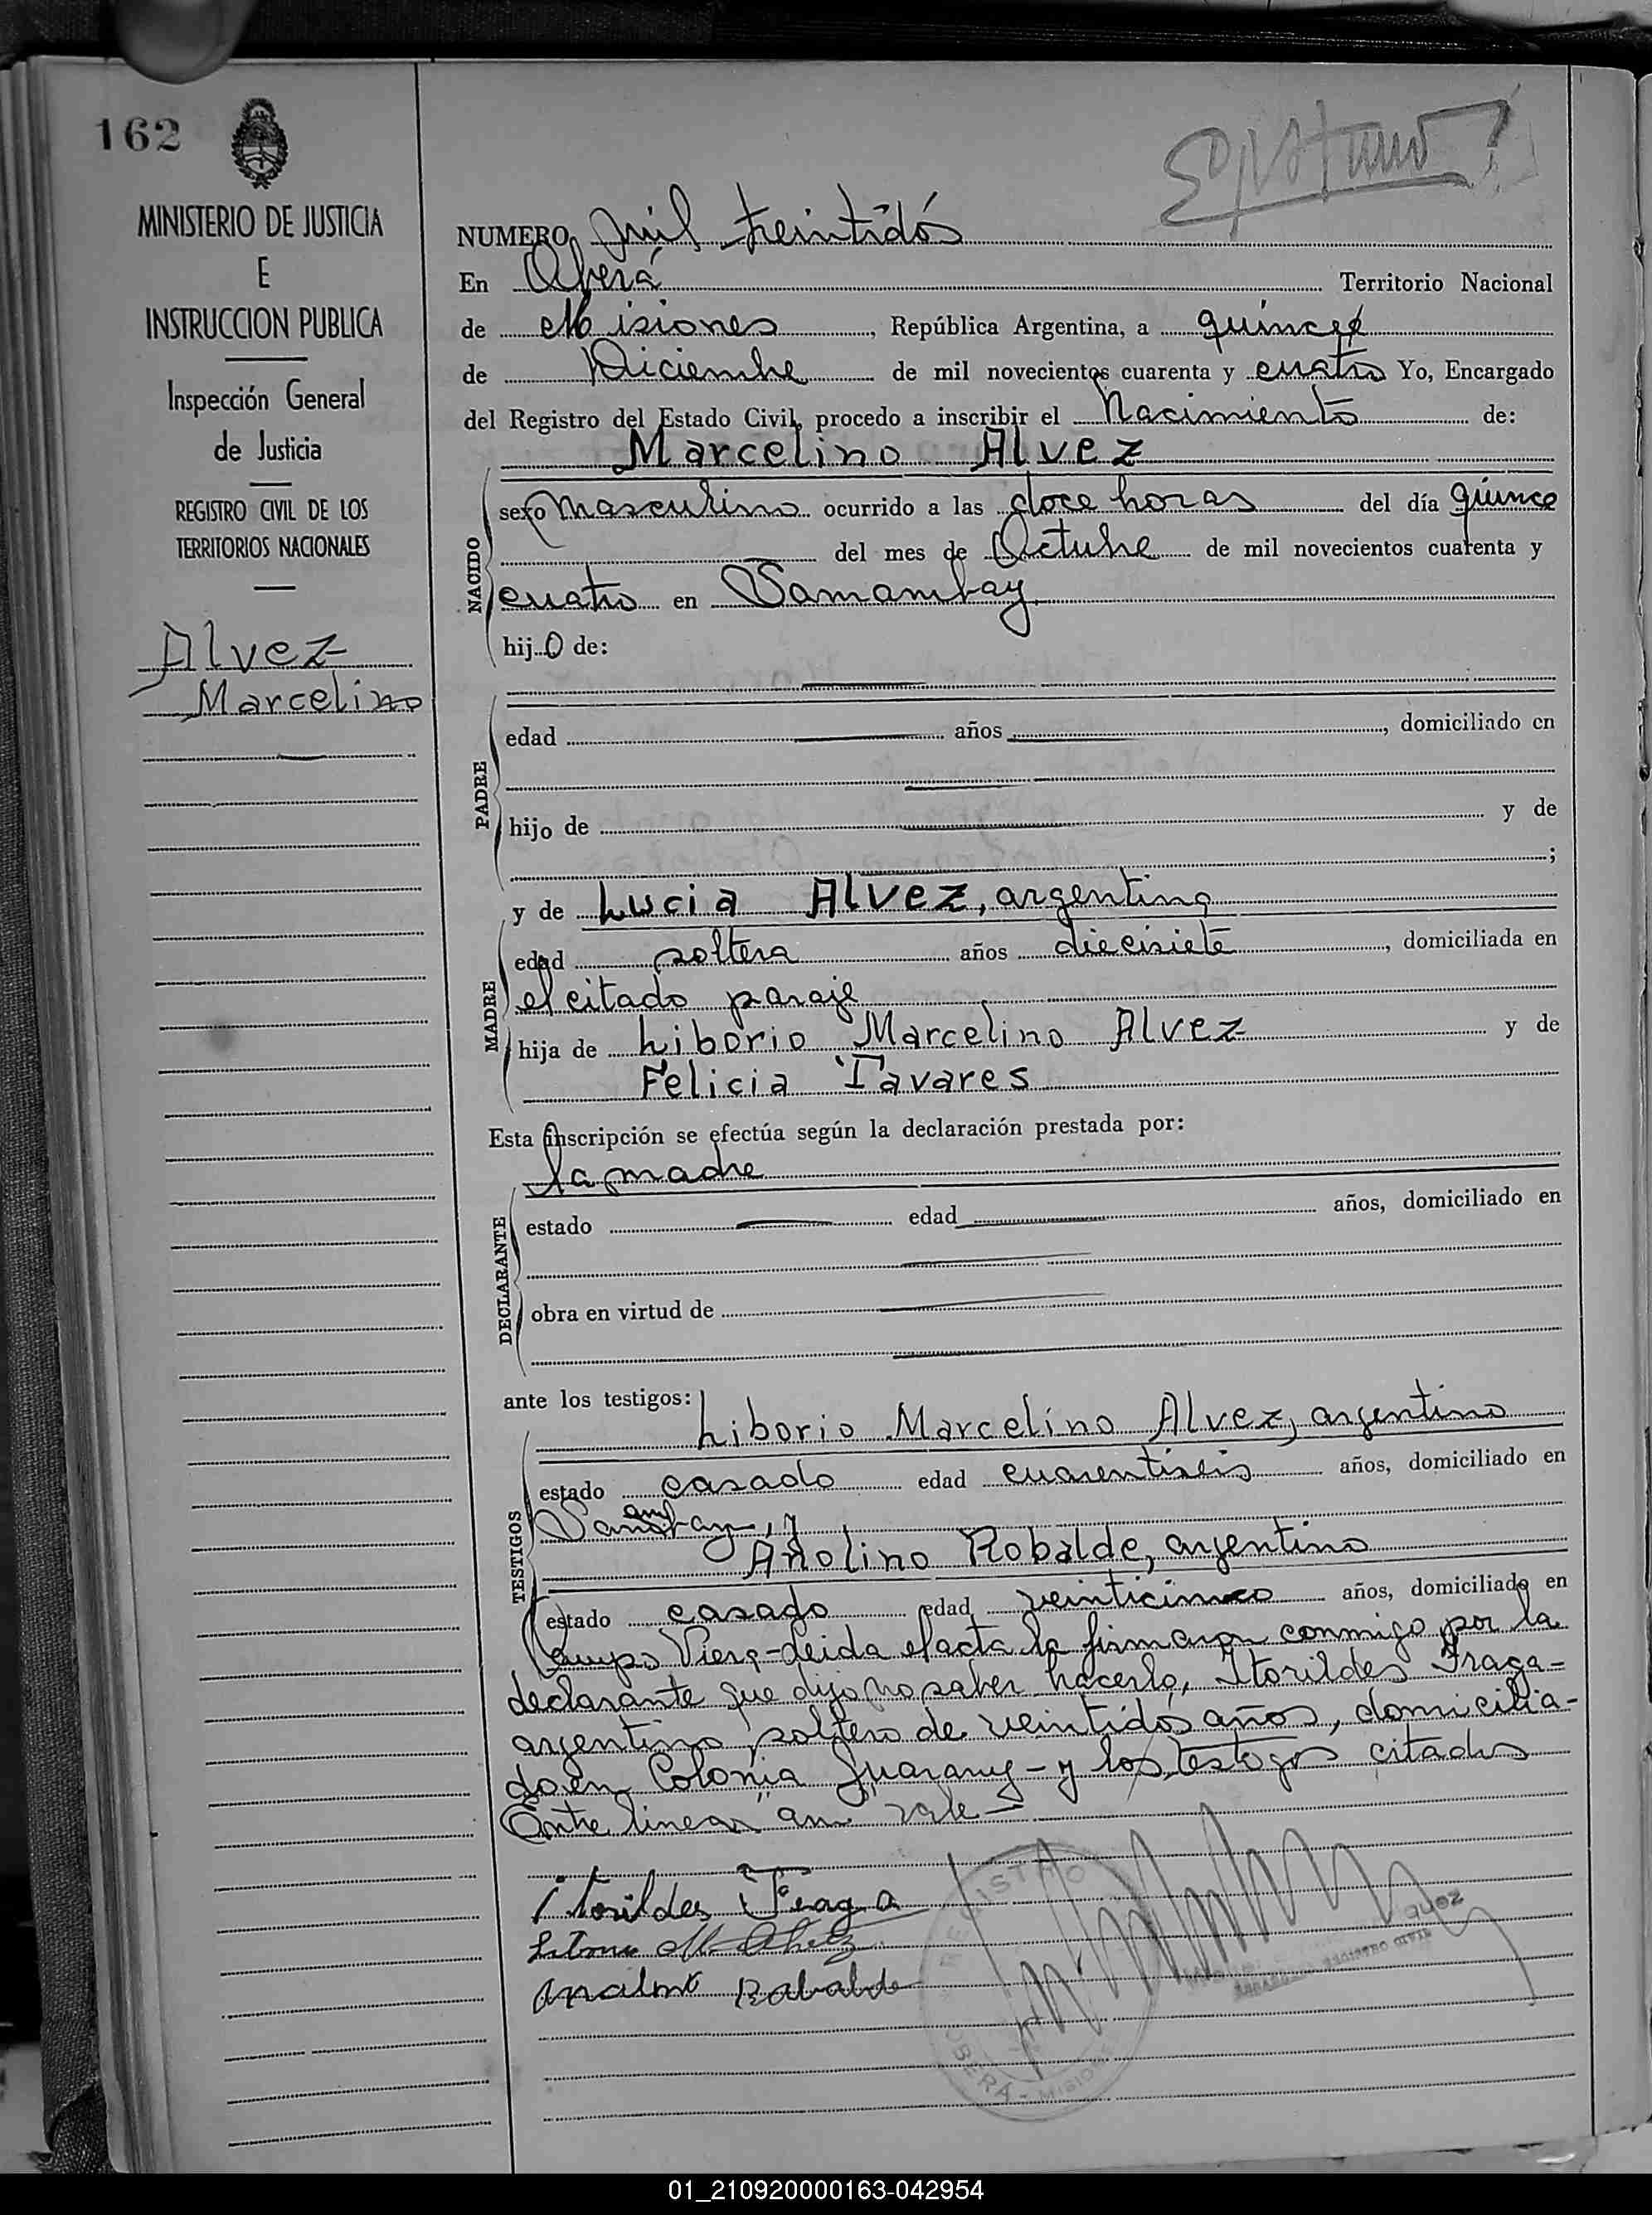 162
MINISTERIO DE JUSTICIA
E
INSTRUCCION PUBLICA
Inspección General
de Justicia
REGISTRO CIVIL DE LOS
TERRITORIOS NACIONALES
Alvez
Marcelino
NUMERO mil treintidós
En Oberá Territorio Nacional
de Misiones, República Argentina, a quince
de Diciembre de mil novecientos cuarenta y cuatro Yo, Encargado
del Registro del Estado Civil, procedo a inscribir el Nacimiento de:
Marcelino Alvez
NACIDO
sexo masculino ocurrido a las doce horas del día quince
del mes de Octubre de mil novecientos cuarenta y
cuatro en Samambay
hijo de:
PADRE
edad años, domiciliado en
hijo de y de
;
MADRE
y de Lucia Alvez, argentina
edad soltera años diecisiete, domiciliada en
el citado paraje
hija de Liborio Marcelino Alvez y de
Felicia Tavares
Esta inscripción se efectúa según la declaración prestada por:
la madre
DECLARANTE
estado edad años, domiciliado en
obra en virtud de
ante los testigos:
Liborio Marcelino Alvez, argentino
TESTIGOS
estado casado edad cuarentiseis años, domiciliado en
y
Anolino Robalde, argentino
estado casado edad veinticinco años, domiciliado en
Campo Viera-leida el acta la firmaron conmigo por la
declarante que dijo no saber hacerlo, Itorildes Fraga-
argentino, soltero de veintidós años, domicilia-
do en Colonia Guarany- y los testigos citados
Entre lineas "am" vale-
Itorildes Fraga
REGISTRO
OBERÁ - MISIONES
REGISTRO CIVIL
01_210920000163-042954